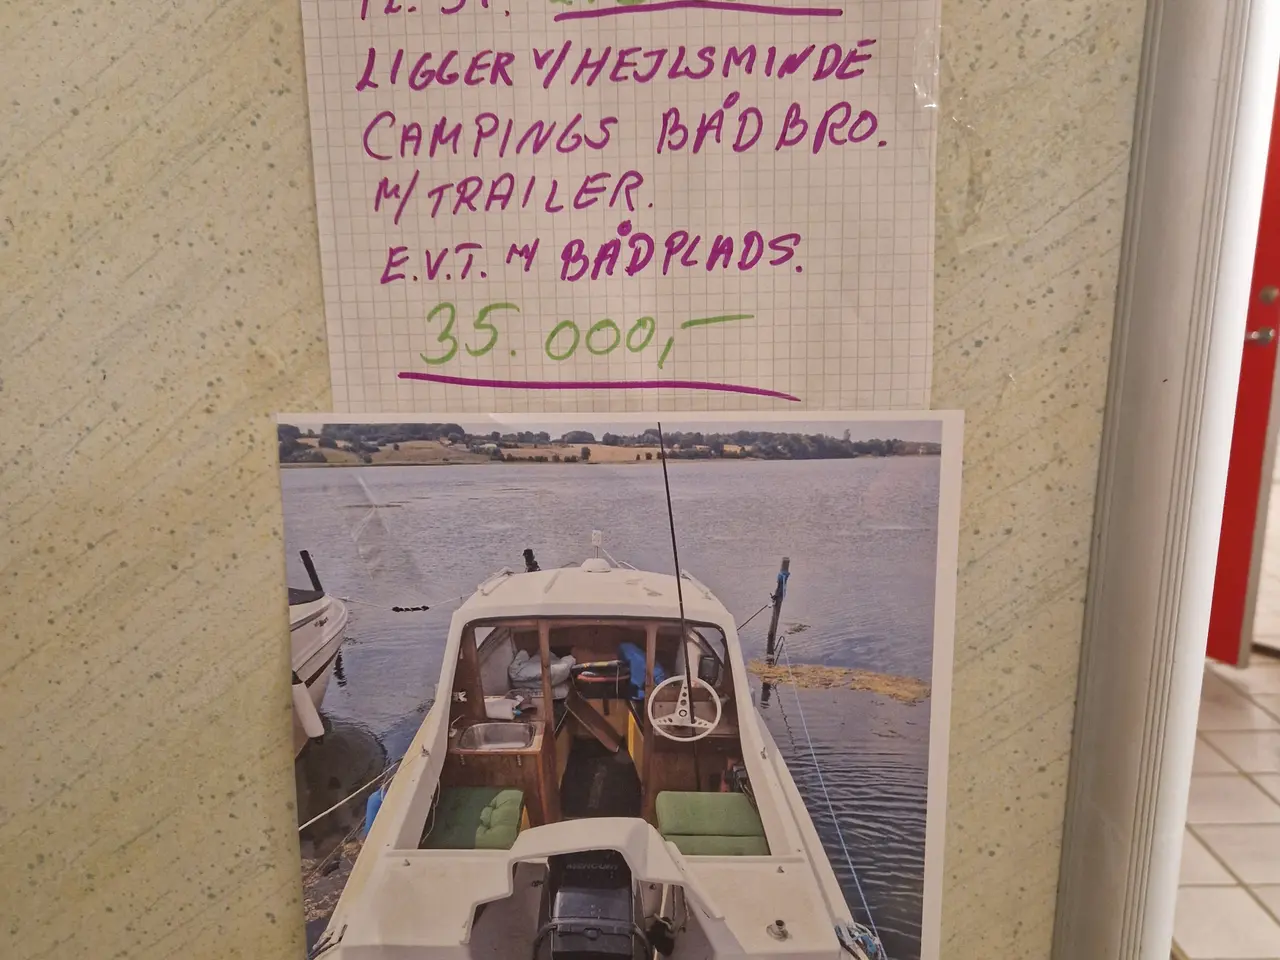 LIGGER V/HEJLSMINDE
CAMPINGS BÅDBRO.
M/TRAILER.
E.V.T. M/ BÅDPLADS.
35.000,-
MERCURY